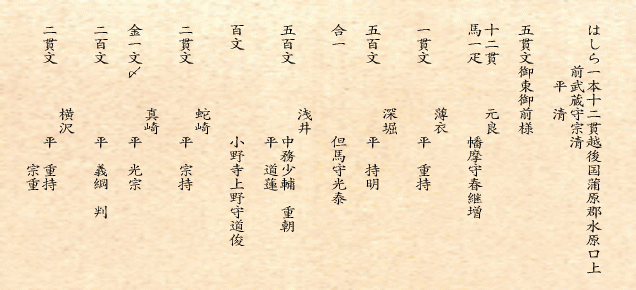 はしら一本十二貫越後国蒲原郡水原口上
前武蔵守宗清
平 清
五貫文御東御前様
十二貫 元良
馬一疋 幡摩守春継増
薄衣
一貫文 平 重持
深堀
五百文 平 持明
合一 但馬守光泰
浅井
五百文 中務少輔 重朝
平 道蓮
百文 小野寺上野守道俊
蛇崎
二貫文 平 宗持
真崎
金一文〆 平 光宗
二百文 平 義綱 判
横沢
二貫文 平 重持
宗重